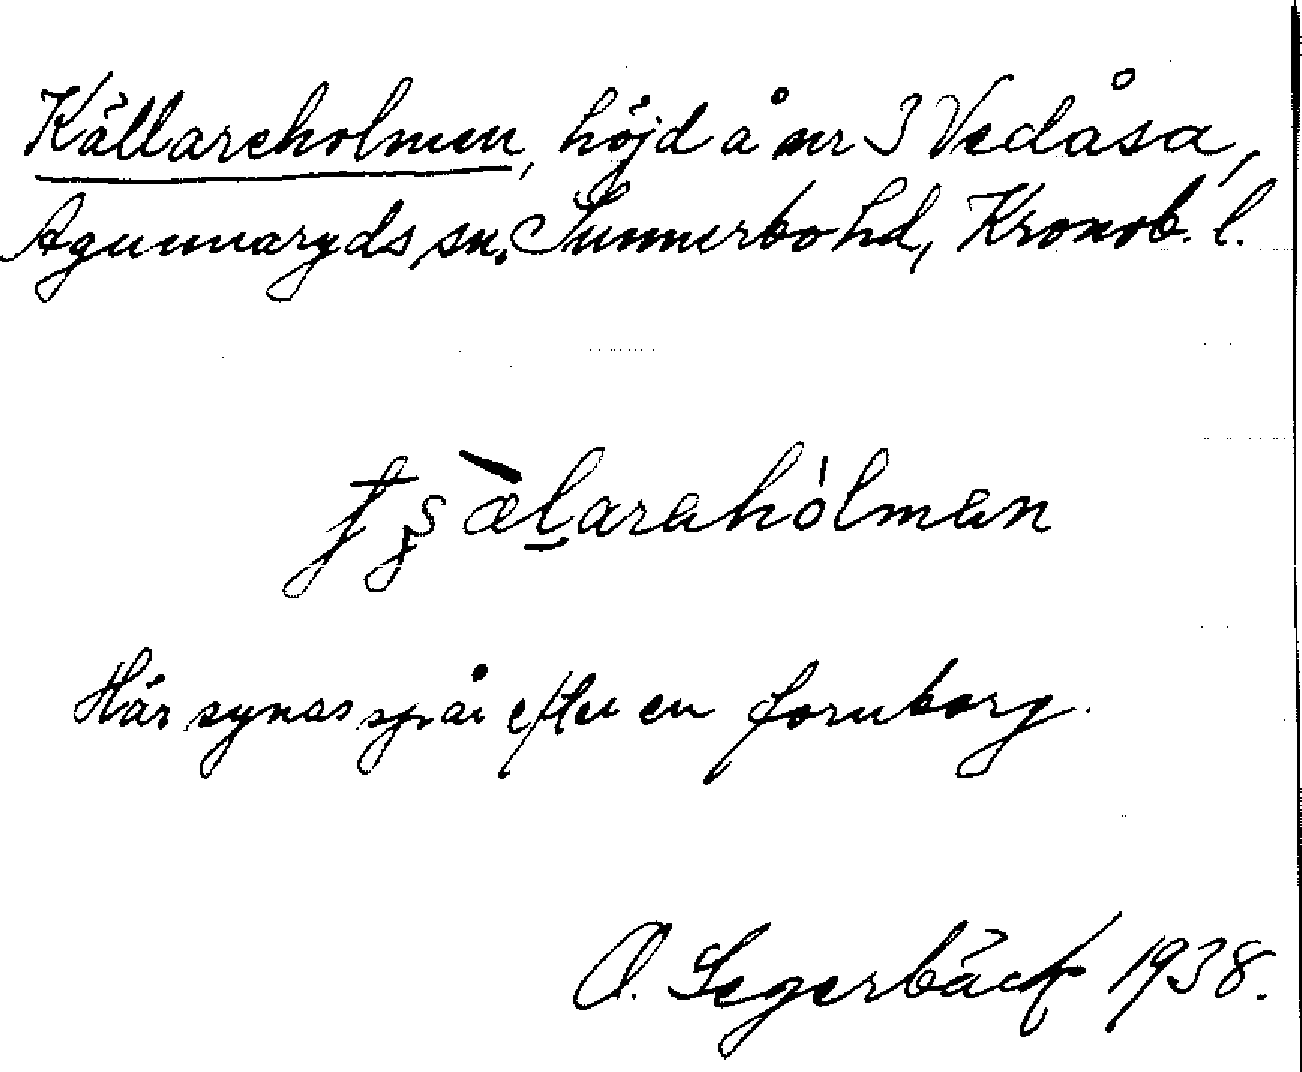 Källareholmen, höjd å nr 3 Vedåsa,
Agunnaryds sn, Sunnerbo hd, Kronob. l.
Här synas spår efter en fornborg.
O. Segerbäck 1938.